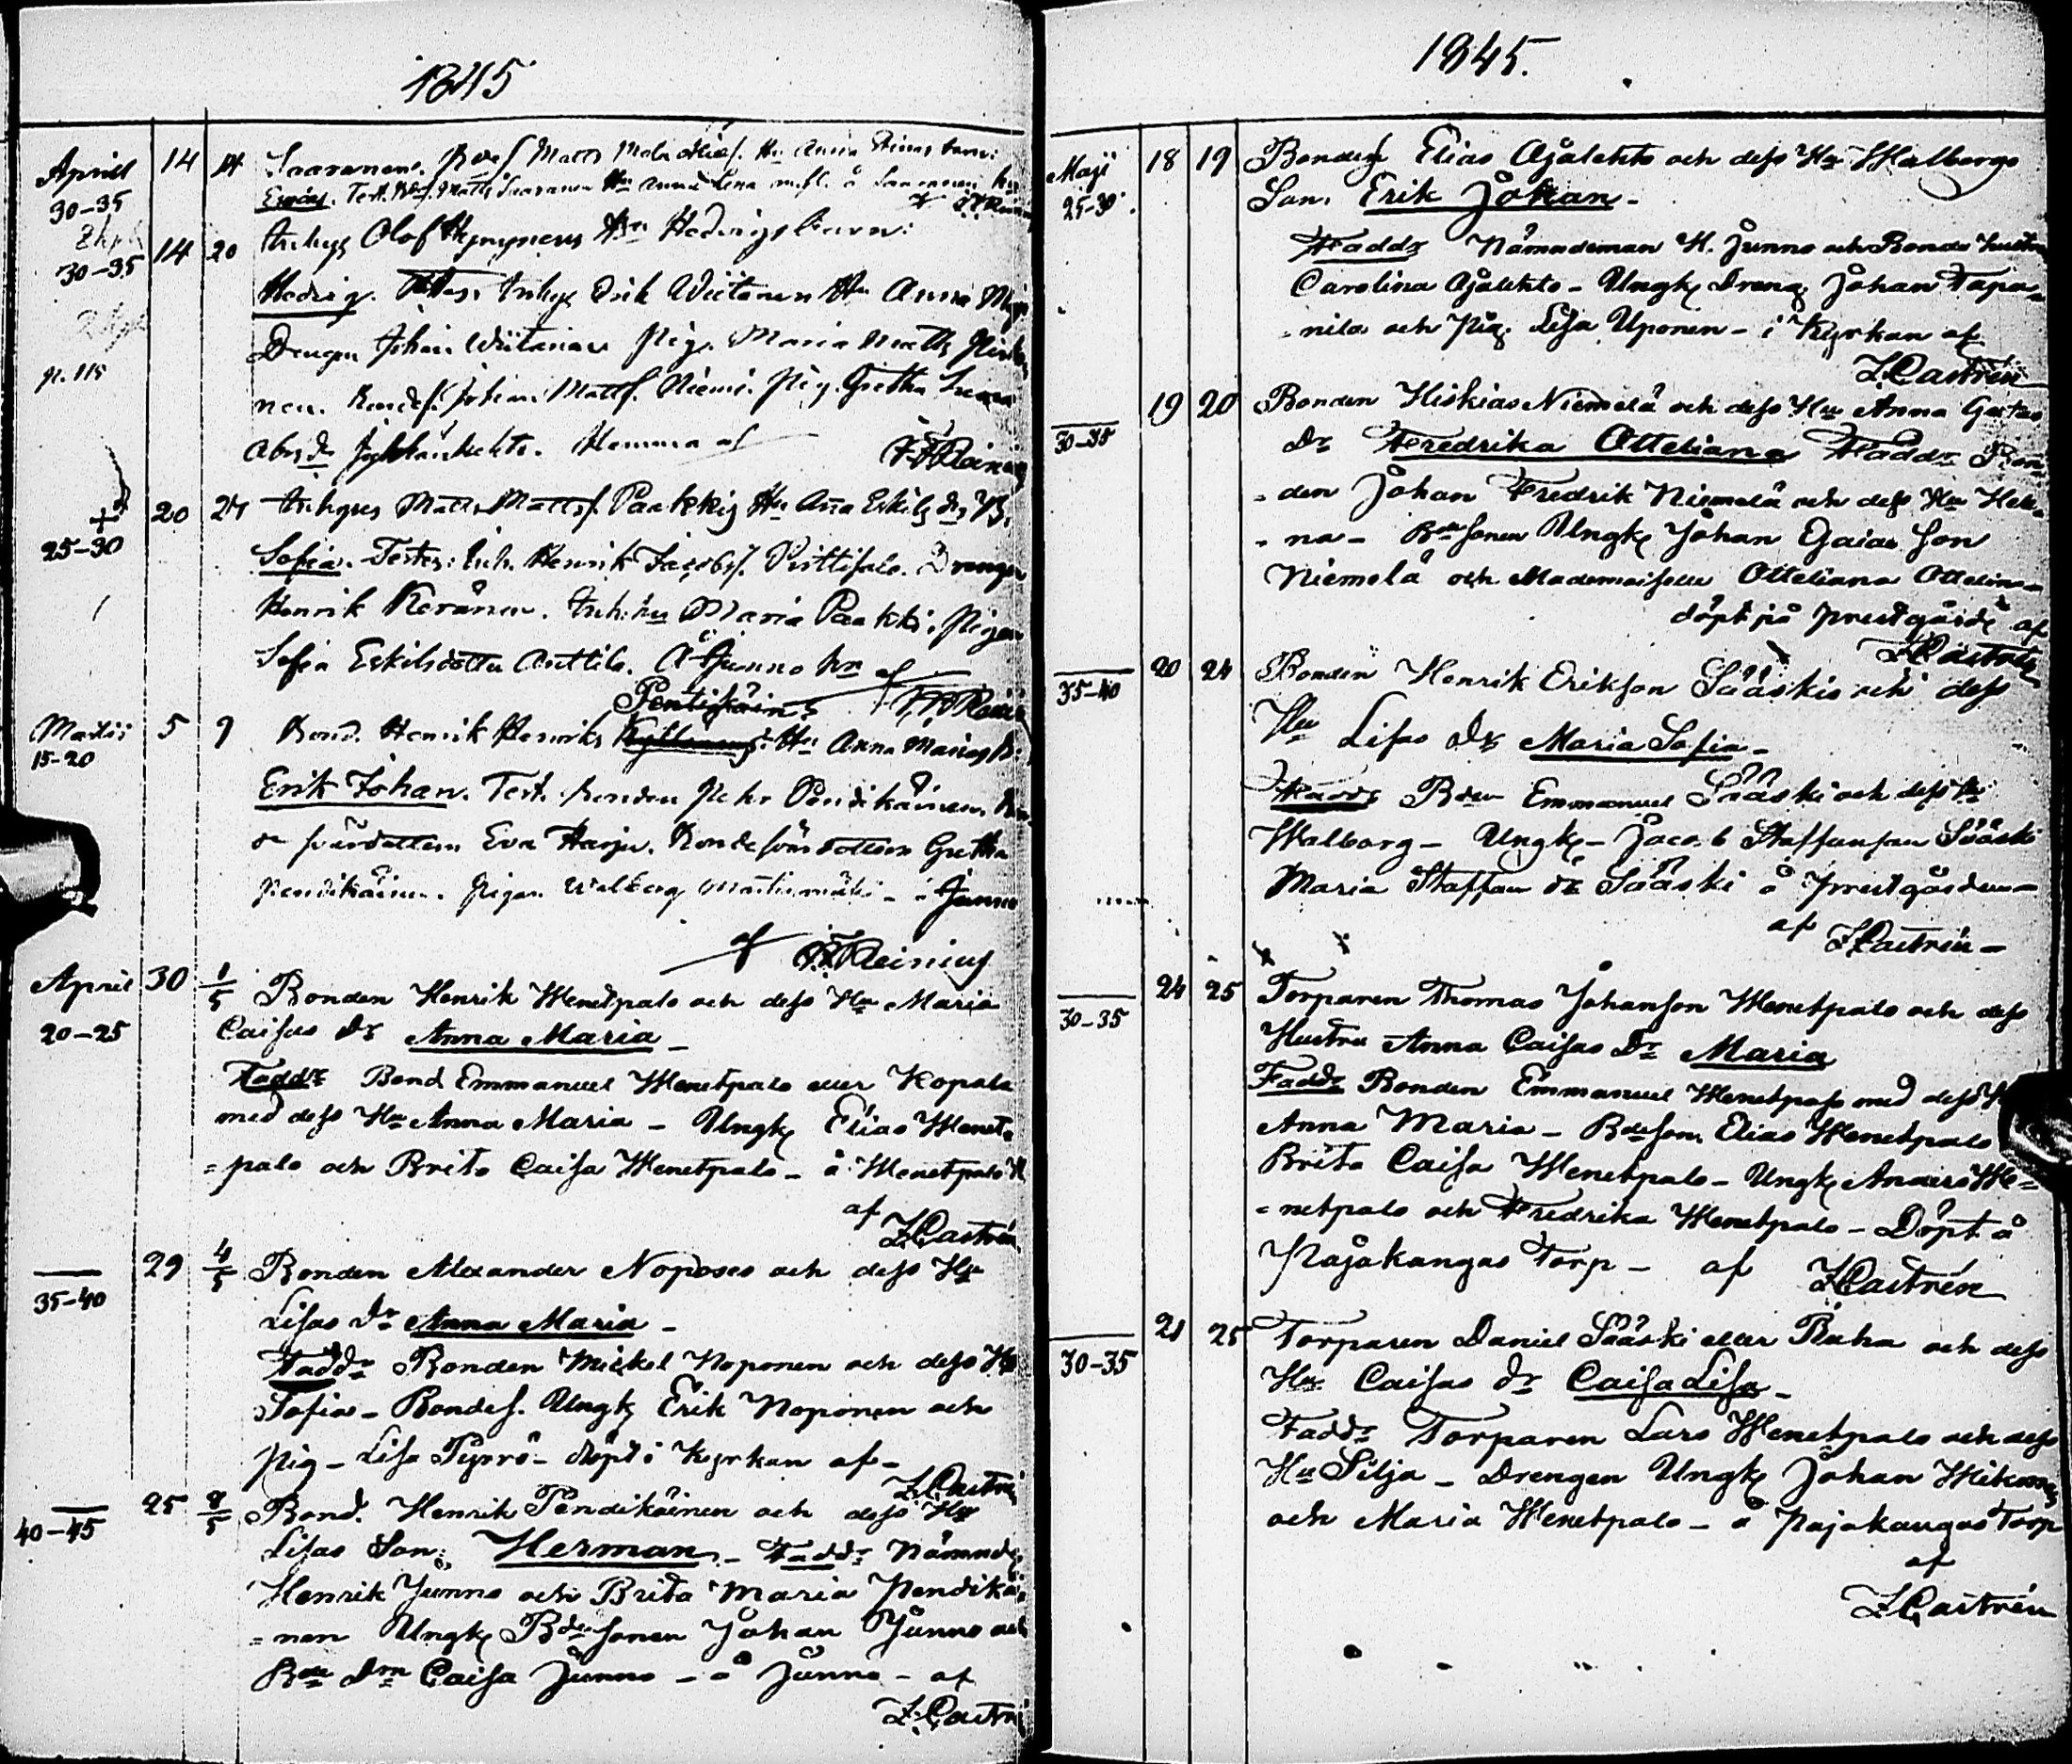 1845
Aprill 14 14 Saaranens. Matts Hu Anna Stinas barn:
30-35 Test. Matts Saaranen Hu Anna Lena
30-35 14 20 Inhys Olof Hyynynens Hu Hedvigs barn:
Hedvig. Test: Inhys Erik Wiitanen Hu Anna
Drengen Johan Wiitanen Pig. Maria Matts
p. 115
nen. Bondes. Johan Mattss. Niemi. Pig. Gretha
Hemma af
F. F. Reinius
+ 20 27 Inhyses Matts Mattss. Paakkis Hu Anna Eskils dr
25-30
Sofia. Testes: Inh. Henrik Jacobss. Pirttisalo. Drengen
Henrik Keränen. Inh. hu Maria Paakki, Pigan
Sofia Eskilsdotter Anttila. Å Junno hn af
Pentikäin. F. F. Reinius
Martii 5 9 Bond. Henrik Henriks Hu Anna Marias
15-20
Erik Johan. Test. bonden Pehr Pendikäinen
Eva Harju. Bondesöndottern Gretha
Pendikäinen. Pigan Walborg - å Junno
af F. F. Reinius
April 30 1/5 Bonden Henrik Wenetpalo och dess Hu Maria
20-25 Caisas dr Anna Maria -
Faddr Bond Emmanuel Wenetpalo eller Kopala
med dess Hu Anna Maria - Ungk Elias Wenet=
=palo och Brita Caisa Wenetpalo - å Wenetpalo
af
F. Castrén
29 4/5 Bonden Alexander Noposes och dess Hu
35-40
Lisas dr Anna Maria -
Faddr Bonden Mickel Noponen och dess Hu
Sofia - Bondes. Ungk Erik Noponen och
Pig - Lisa Pyrrö - döpt i Kyrkan af -
F. Castrén
25 8/5 Bond. Henrik Pendikäinen och dess Hu
40-45
Lisas Son: Herman - Faddr Nämndm
Henrik Junno och Brita Maria Pendikäi=
=nen Ungk Bdesonen Johan Junno och
Bde Drn Caisa Junno - å Junno - af
F. Castrén
1845.
Maji 18 19 Bondens Elias Ajalehto och dess Hu Walborgs
25-30 Son. Erik Johan -
Faddr Nämndeman H. Junno och Bonde hustru
Carolina Ajalehto - Ungk Dreng Johan Tapa=
=nila och Pig. Lisa Uponen - i Kyrkan af
F. Castrén
19 20 Bonden Hiskias Niemelä och dess Hu Anna Gretas
30-35
Dr Fredrika Otteliana Faddr Bon=
=den Johan Fredrik Niemelä och dess Hu Hele=
=na - Bdesonen Ungk Johan Esaias Son
Niemelä och Mademoiselle Otteliana
döpt på prestgård af
F. Castrén
20 24 Bonden Henrik Erikson Sääskis och dess
35-40
Hu Lisas dr Maria Sofia -
Faddr Bden Emmanuel Sääski och dess Hu
Walborg - Ungk - Jacob Staffanson Sääski
Maria Staffans dr Sääski å Prestgården -
af
F. Castrén -
24 25 Torparen Thomas Johanson Wenetpalo och dess
30-35
Hustru Anna Caisas Dr Maria
Faddr Bonden Emmanuel Wenetpalo med dess Hu
Anna Maria - Bdeson Elias Wenetpalo
Brita Caisa Wenetpalo - Ungk Anders We=
=netpalo och Fredrika Wenetpalo - Döpt å
Pajakangas Torp - af F. Castrén
21 25 Torparen Daniel Sääski eller Raha och dess
30-35
Hu Caisas dr Caisa Lisa -
Faddr Torparen Lars Wenetpalo och dess
Hu Silja - Drengen Ungk Johan
och Maria Wenetpalo - å Pajakangas Torp
af
F. Castrén